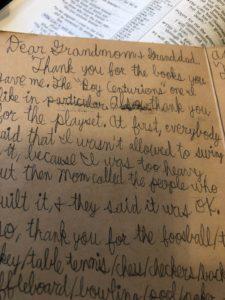 Dear Grandmom & Granddad,
Thank you for the books you
gave me. The "Boy Centurions" one I
like in particular. thank you
for the playset. At first, everybody
said that I wasn't allowed to swing
it, because I was too heavy,
but then Mom called the people who
built it, & they said it was OK.
so, thank you for the foosball/
key/table tennis/chess/checkers/
ffleboard/bowling/pool/